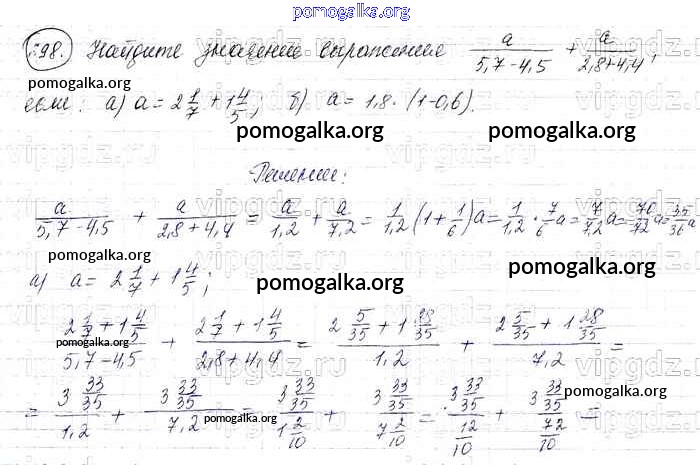 pomogalka.org
598. Найдите значение выражения a/(5,7-4,5) + a/(2,8+4,4),
pomogalka.org
если: а) a = 2 1/7 + 1 4/5; б) a = 1,8 · (1-0,6).
pomogalka.org pomogalka.org
Решение:
a/(5,7-4,5) + a/(2,8+4,4) = a/1,2 + a/7,2 = 1/1,2 · (1 + 1/6)a = 1/1,2 · 7/6 a = 7/7,2 a = 70/72 a = 35/36 a
pomogalka.org
а) a = 2 1/7 + 1 4/5; pomogalka.org pomogalka.org
(2 1/7 + 1 4/5)/(5,7-4,5) + (2 1/7 + 1 4/5)/(2,8+4,4) = (2 5/35 + 1 28/35)/1,2 + (2 5/35 + 1 28/35)/7,2 =
pomogalka.org
= (3 33/35)/1,2 + (3 33/35)/7,2 = (3 33/35)/(1 2/10) + (3 33/35)/(7 2/10) = (3 33/35)/(12/10) + (3 33/35)/(72/10) =
pomogalka.org pomogalka.org pomogalka.org